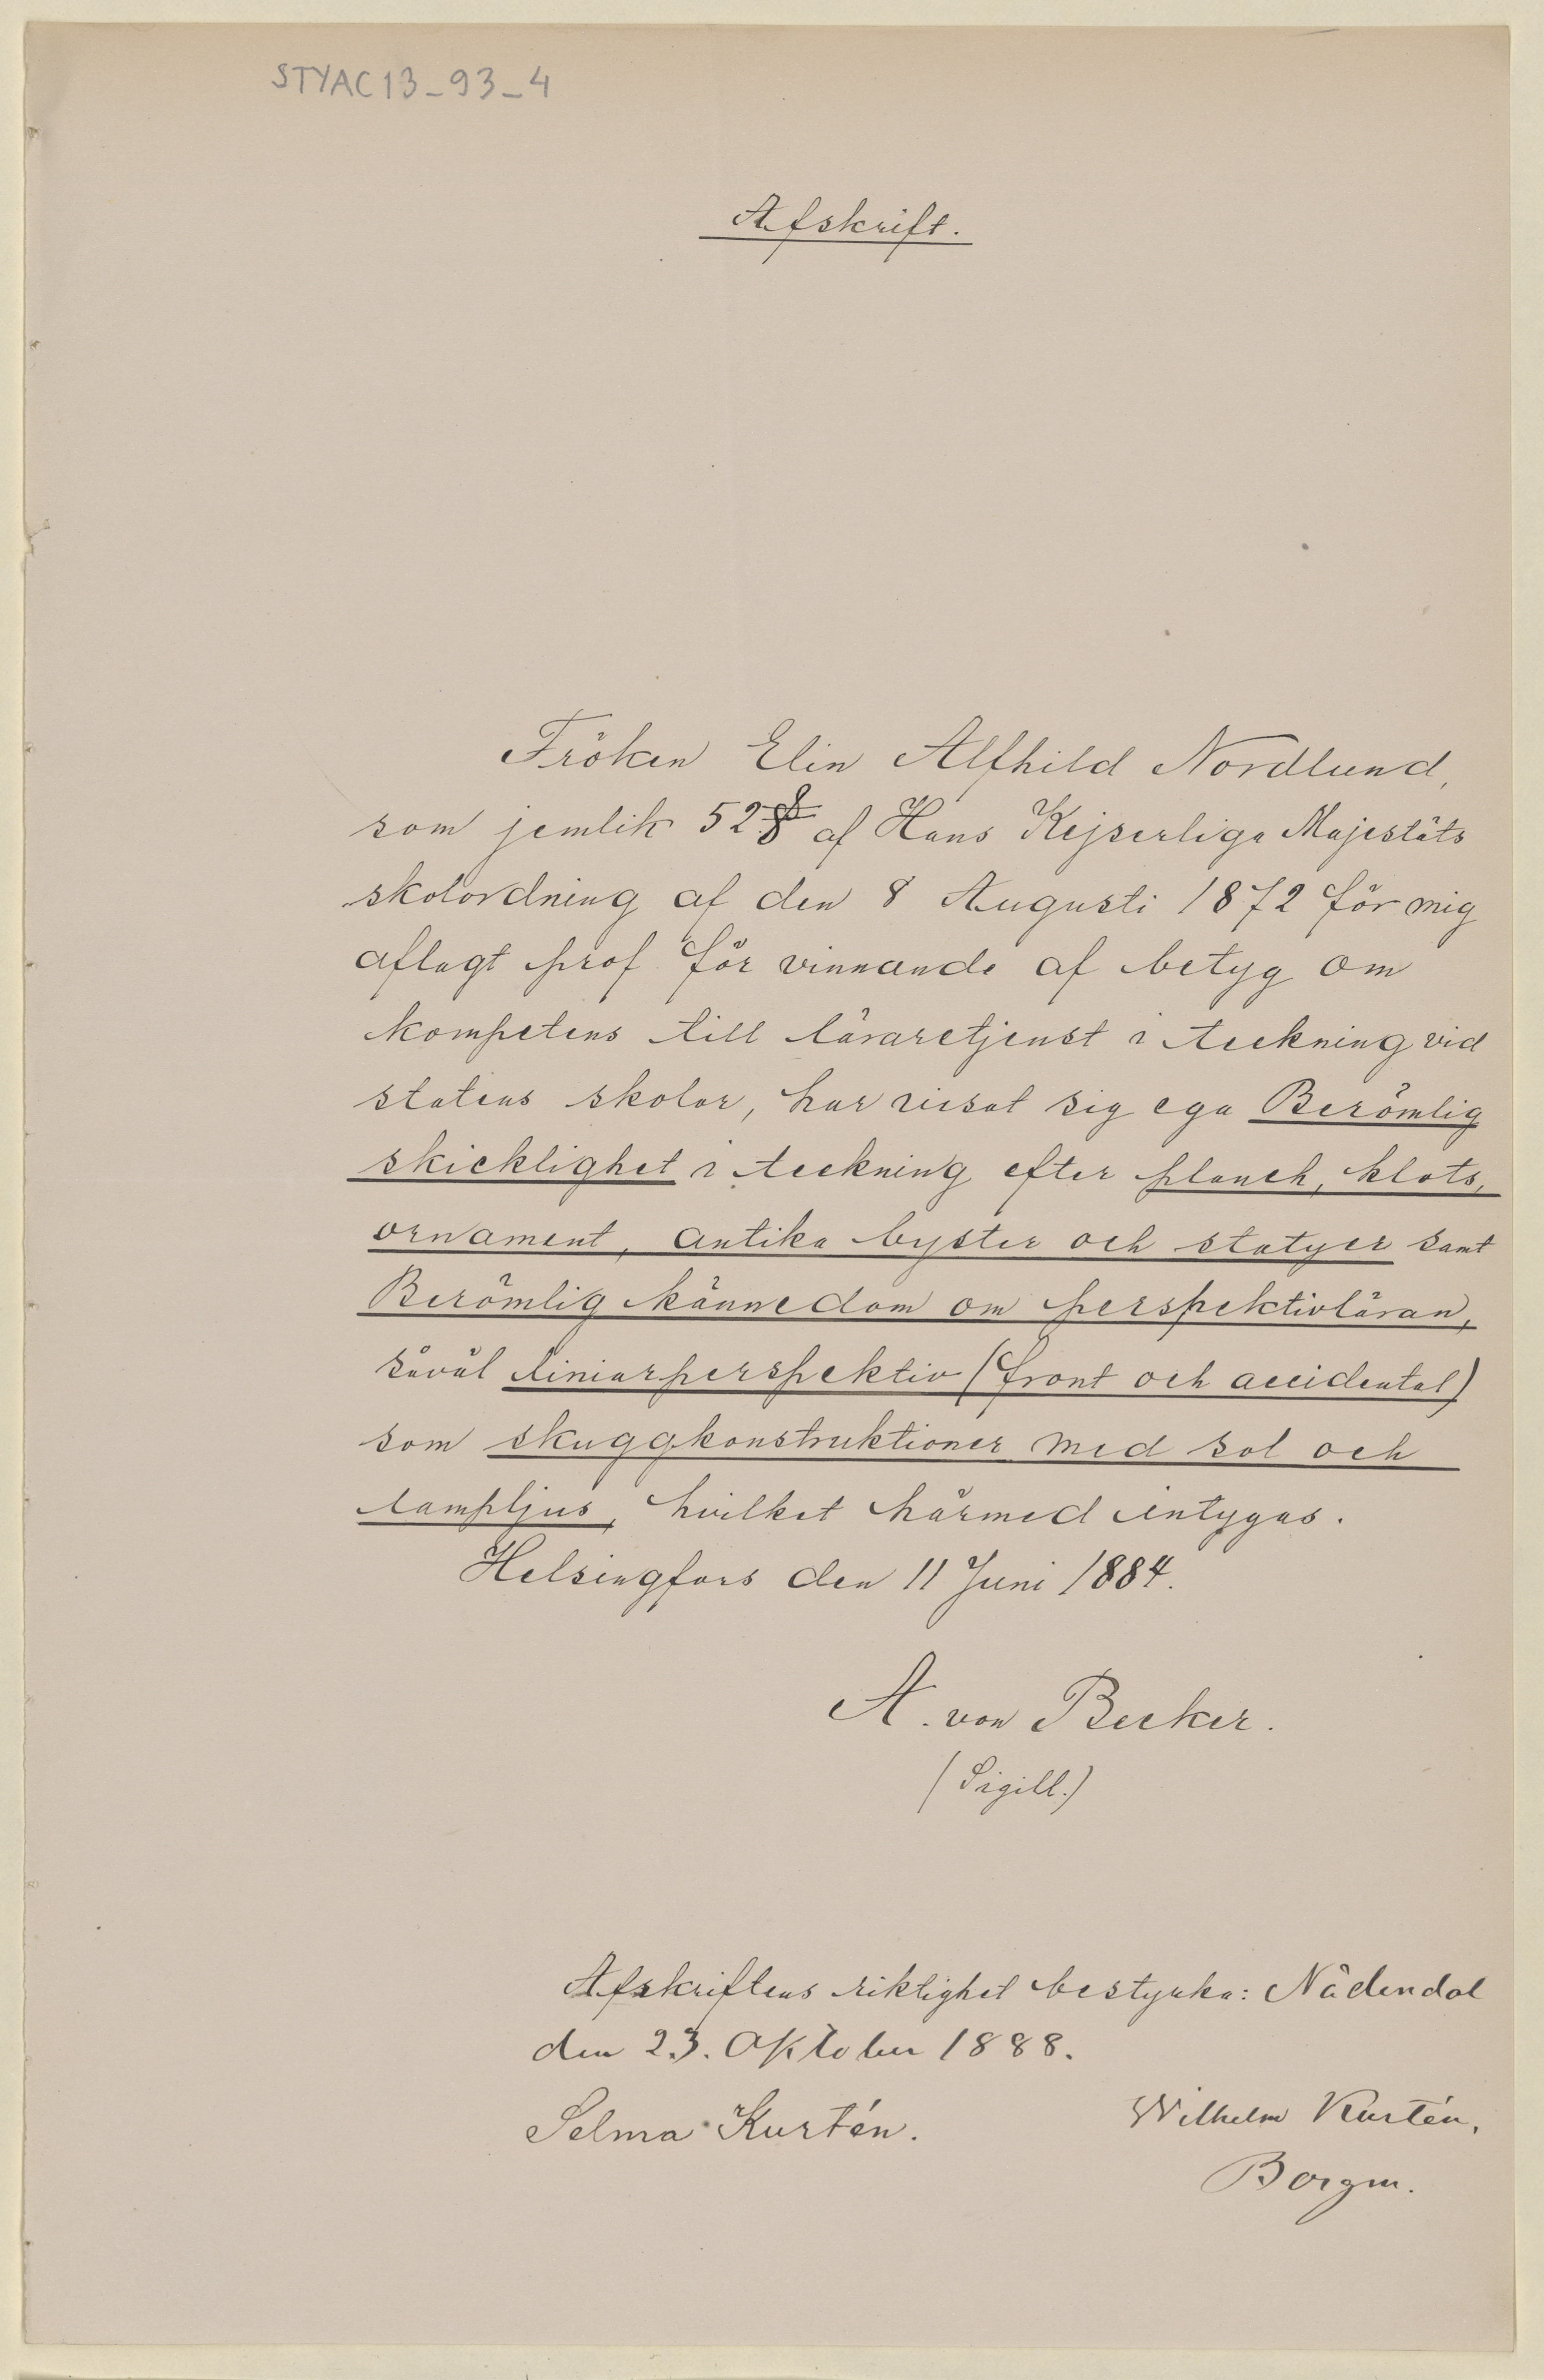 STYAC13_93_4
Afskrift.
Fröken Elin Alfhild Nordlund,
som jemlik 52 § af Hans Kejserliga Majestäts
skolordning af den 8 Augusti 1872 för mig
aflagt prof för vinnande af betyg om
kompetens till läraretjenst i teckning vid
statens skolor, har visat sig ega Berömlig
skicklighet i teckning efter planch, klots,
ornament, antika byster och statyer samt
Berömlig kännedom om perspektivläran,
såväl liniarperspektiv (front och accidental)
som skuggkonstruktioner med sol och
lampljus, hvilket härmed intygas.
Helsingfors den 11 Juni 1884.
A. von Becker.
(Sigill.)
Afskriftens riktighet bestyrka: Nådendal
den 23. Oktober 1888.
Selma Kurtén. Wilhelm Kurtén,
Borgm.